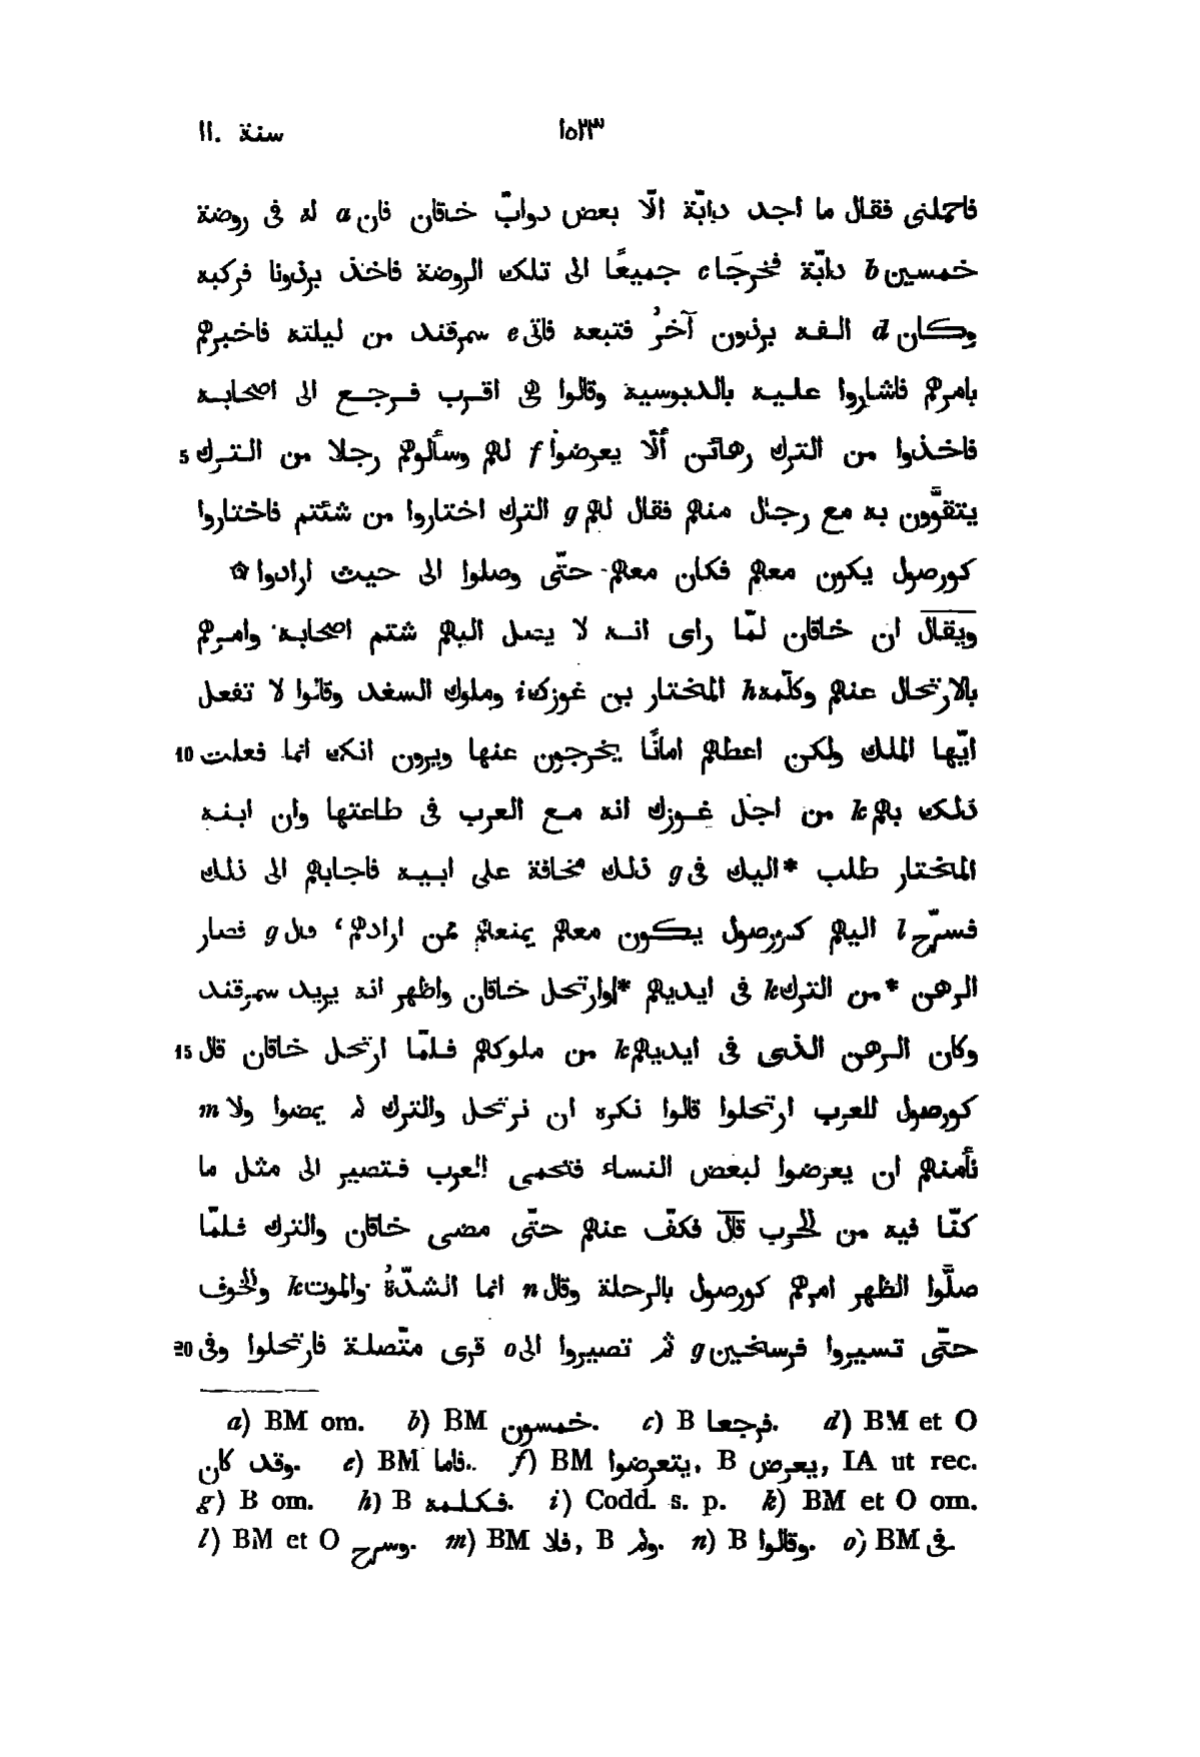 سنة ١١٠ ١٥٢٣
فاحملنى فقال ما اجد دابّة الّا بعض دوابّ خاقان فان a له فى روضة
خمسين b دابّة فخرجَا c جميعًا الى تلك الروضة فاخذ برذونا فركبه
وكان d الفه برذون آخرُ فتبعه فاتى e سمرقند من ليلته فاخبرهم
بامرهم فاشاروا عليه بالدبوسية وقالوا هى اقرب فرجع الى اصحابه
فاخذوا من الترك رهائن ألّا يعرضوا f لهم وسألوهم رجلا من الترك 5
يتقوّون به مع رجال منهم فقال لهم g الترك اختاروا من شئتم فاختاروا
كورصول يكون معهم فكان معهم حتّى وصلوا الى حيث ارادوا ۞
ويقال ان خاقان لمّا راى انه لا يصل اليهم شتم اصحابه وامرهم
بالارتحال عنهم وكلّمه h المختار بن غوزك i وملوك السغد وقالوا لا تفعل
ايّها الملك ولكن اعطهم امانًا يخرجون عنها ويرون انك انما فعلت 10
ذلك بهم k من اجل غوزك انه مع العرب فى طاعتها وان ابنه
المختار طلب *اليك فى g ذلك مخافة على ابيه فاجابهم الى ذلك
فسرّح l اليهم كورصول يكون معهم يمنعهم ممن ارادهم، قال g فصار
الرهن *من الترك k فى ايديهم *وارتحل خاقان واظهر انه يريد سمرقند
وكان الرهن الذى فى ايديهم k من ملوكهم فلمّا ارتحل خاقان قال 15
كورصول للعرب ارتحلوا قالوا نكره ان نرتحل والترك لم يمضوا ولا m
نأمنهم ان يعرضوا لبعض النساء فتحمى العرب فتصير الى مثل ما
كنّا فيه من الحرب قال فكفّ عنهم حتّى مضى خاقان والترك فلمّا
صلّوا الظهر امرهم كورصول بالرحلة وقال n انما الشدّةُ والموت k والخوف
حتّى تسيروا فرسخين g ثم تصيروا الى o قرى متّصلة فارتحلوا وفى 20
a) BM om. b) BM خمسون. c) B فرجعا. d) BM et O
وقد كان. e) BM فاما. f) BM يتعرضوا, B يعرض, IA ut rec.
g) B om. h) B فكلمه. i) Codd. s. p. k) BM et O om.
l) BM et O وسرح. m) BM فلا, B ولم. n) B وقالوا. o) BM فى.